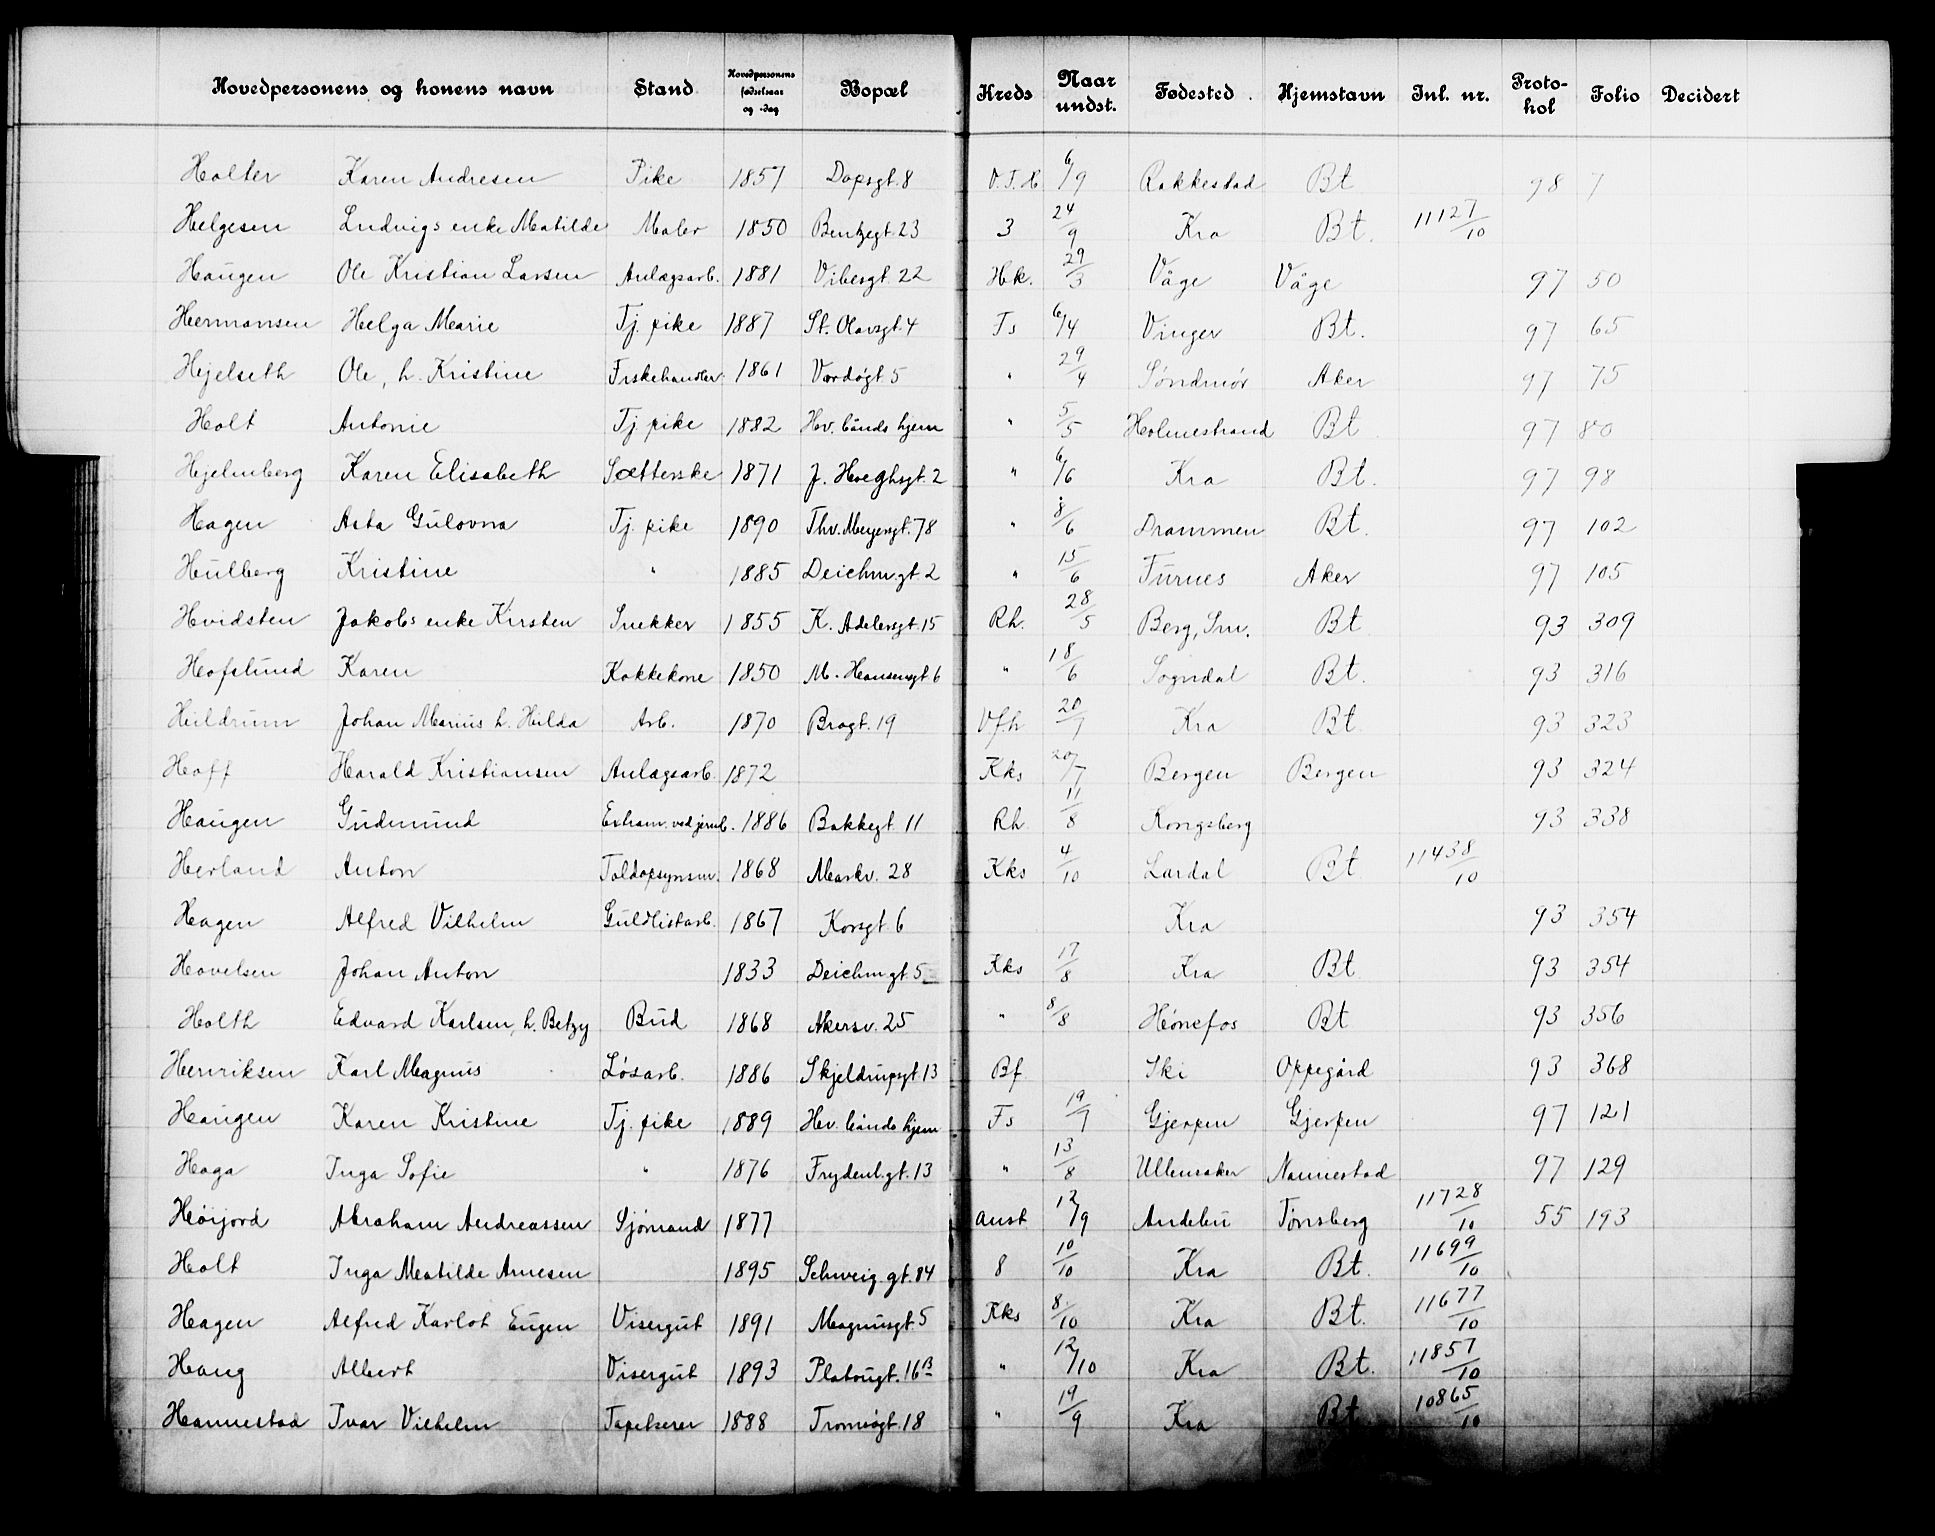 Hovedpersonens og konens navn Stand Hovedpersonens fødselsaar og -dag Bopæl Kreds Naar undst. Fødested Hjemstavn Inl. nr. Protokol Folio Decidert
Holter Karen Andresen Pike 1857 Dopsgt. 8 V.T.H 6/9 Rakkestad Bt 98 7
Helgesen Ludvigs enke Matilde Maler 1850 Bentzegt. 23 3 24/9 Kra Bt. 11127/10
Haugen Ole Kristian Larsen Anlægsarb. 1881 Vibesgt. 22 Hk. 29/3 Våge Våge 97 50
Hermansen Helga Marie Tj. pike 1887 St. Olavsgt. 4 Fs 6/4 Vinger Bt. 97 65
Hejelseth Ole, h. Kristine Fiskehandler 1861 Vardøgt 5 " 29/4 Søndmør Aker 97 75
Holt Antonie Tj pike 1882 Hv. bånds hjem " 5/5 Holmestrand Bt 97 80
Hjelmberg Karen Elisabeth Sætterske 1871 J. Hoeghsgt. 2 " 6/6 Kra Bt. 97 98
Hagen Asta Gulovna Tj. pike 1890 Thv. Meyersgt. 78 " 8/6 Drammen Bt. 97 102
Hulberg Kristine " 1885 Deichm.gt. 2 " 15/6 Furnes Aker 97 105
Hvidsten Jakobs enke Kirsten Snekker 1855 K. Adelersgt. 15 Rh. 28/5 Berg, Sm. Bt 93 309
Hofslund Karen Kokkekone 1850 M. Hansensgt 6 " 18/6 Sogndal Bt. 93 316
Huldrum Johan Marius h. Hilda Arb. 1870 Bragt. 19 Vfh 20/7 Kra Bt. 93 323
Hoff Harald Kristiansen Anlægsarb. 1872 Kks 20/7 Bergen Bergen 93 324
Haugen Gudmund Extram. ved jernb. 1886 Bakkegt. 11 Rh. 11/8 Kongsberg 93 338
Herland Anton Toldopsynsm. 1868 Markv. 28 Kks 4/10 Lardal Bt 11438/10
Hagen Alfred Vilhelm Guldlistarb. 1867 Korsgt. 6 Kra 93 354
Havelsen Johan Anton 1833 Deichm.gt. 5 Kks 17/8 Kra Bt 93 354
Holth Edvard Karlsen, h. Betzy Bud 1868 Akersv. 25 " 8/8 Hønefos Bt 93 356
Henriksen Karl Magnus Løsarb. 1886 Skjeldrupsgt. 13 Bf. Ski Oppegård 93 368
Haugen Karen Kristine Tj. pike 1889 Hv. bånds hjem Fs 19/7 Gjerpen Gjerpen 97 121
Haga Inga Sofie " 1876 Frydenb.gt. 13 " 13/8 Ullensaker Nannestad 97 129
Høijord Abraham Andreassen Sjømand 1877 anst 12/9 Andebu Tønsberg 11728/10 55 193
Holt Inga Matilde Arnesen 1895 Schweig.gt. 84 8 10/10 Kra Bt. 11699/10
Hagen Alfred Karlot Eugen Visergut 1891 Magnusgt. 5 Kks 8/10 Kra Bt. 11677/10
Haug Albert Visergut 1893 Platougt. 16 B " 12/10 Kra Bt. 11857/10
Hannestad Ivar Vilhelm Tapetserer 1888 Tromsøgt. 18 " 19/9 Kra Bt. 10865/10